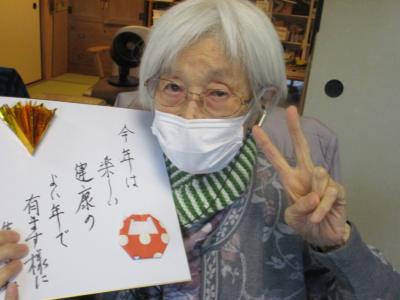 今年は
楽しい
健康の
よい年で
有ます様に